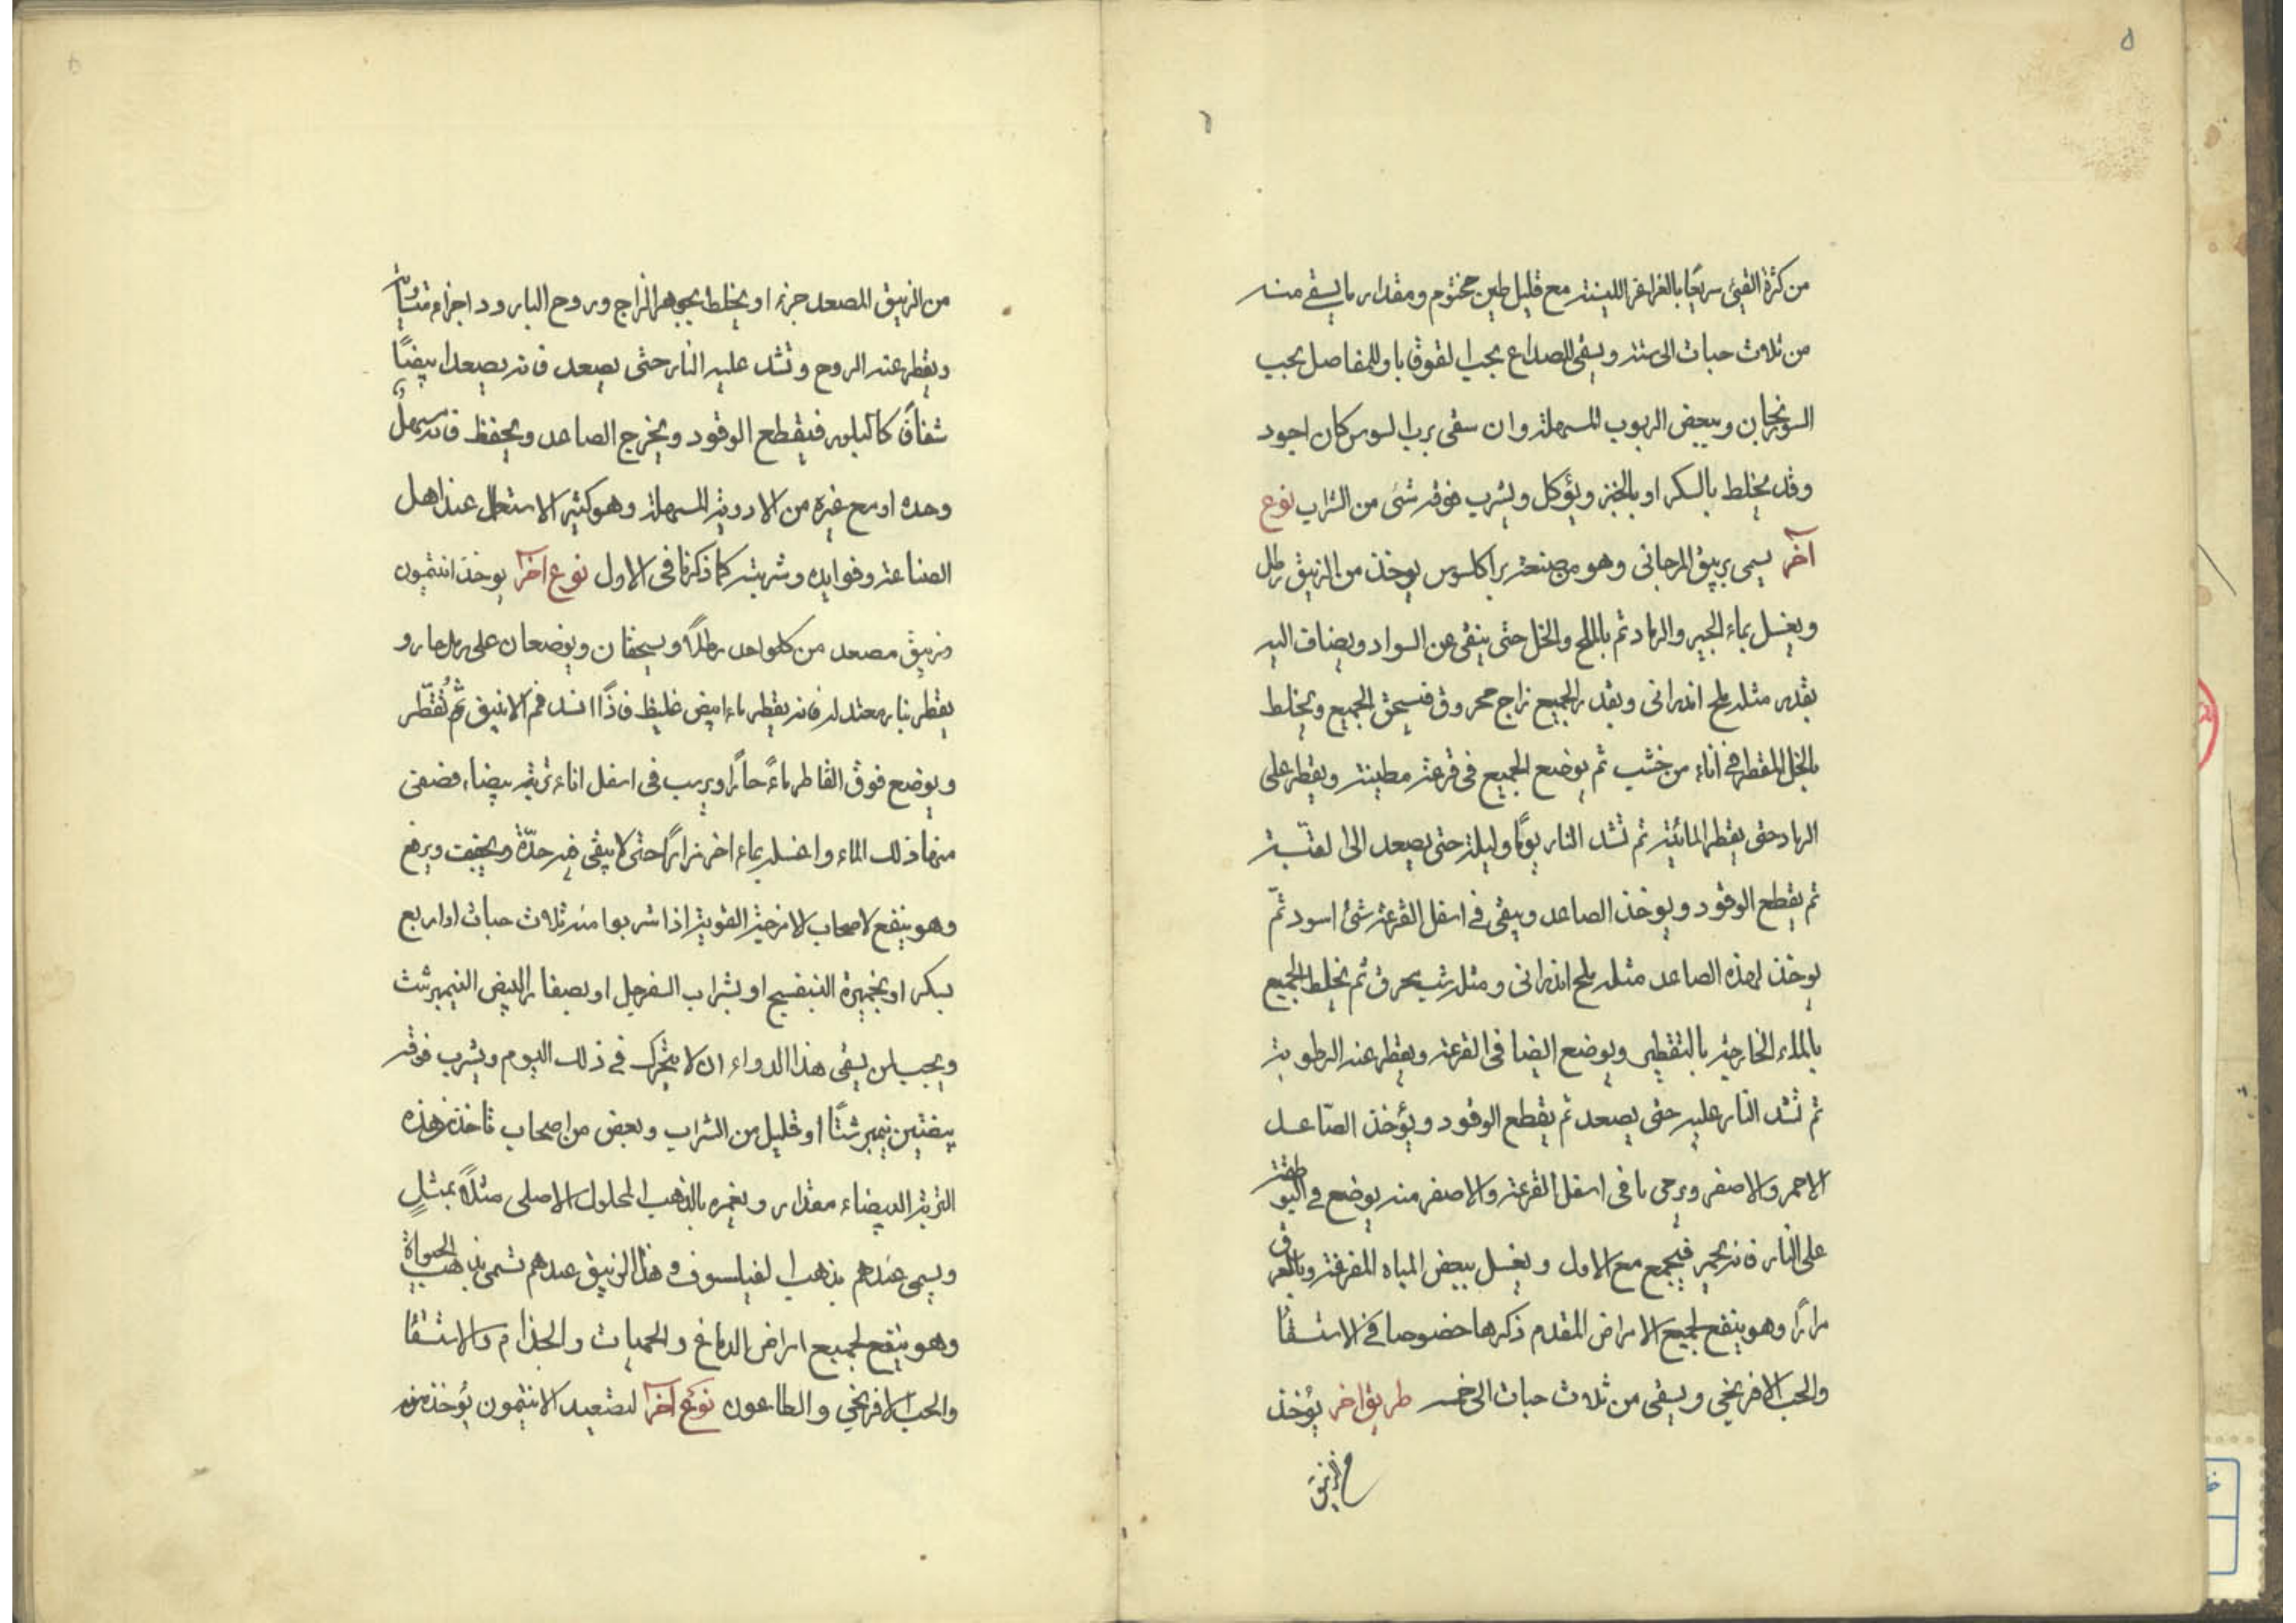 ٥
من كثرة القيئ سريعًا بالغراغر اللينة مع قليل طين مختوم ومقدار ما يسقى منه
من ثلاث حبات الى ستة ويسقى للصداع بحب القوقيا وللمفاصل بحب
السورنجان وببعض الربوب المسهلة وان سقى برب السوس كان اجود
وقد يخلط بالسكر او بالخبز ويؤكل ويشرب فوقه شئ من الشراب نوع
آخر يسمى بريبق المرجانى وهو من صنعة براكلسوس يوخذ من الزيبق رطل
ويغسل بماء الجير والرماد ثم بالملح والخل حتى ينقى عن السواد ويضاف اليه
بقدره مثله ملح اندرانى وبقدر الجميع زاج محروق فيسحق الجميع ويخلط
بالخل المقطر فى اناء من خشب ثم يوضع الجميع فى قرعة مطينة ويقطر على
الرماد حتى يقطر المائية ثم تشد النار يومًا وليلة حتى يصعد الى القبة
ثم يقطع الوقود ويوخذ الصاعد ويبقى فى اسفل القرعة شئ اسود ثم
يوخذ لهذه الصاعد مثله ملح اندرانى ومثله شب محرق ثم يخلط الجميع
بالماء الخارجة بالتقطير ويوضع ايضا فى القرعة ويقطر عنه الرطوبة
ثم تشد النار عليه حتى يصعد ثم يقطع الوقود ويؤخذ الصّاعد
الاحمر والاصفر ويرمى ما فى اسفل القرعة والاصفر منه يوضع فى البوطقة
على النار فانه يحمر فيجمع مع الاول ويغسل ببعض المياه المفرقة وبالعرق
مرارًا وهو ينفع لجميع الامراض المقدم ذكرها خصوصا فى الاستسقا
والحب الافرنجي ويسقى من ثلاث حبات الى خمسه طريق اخر يؤخذ
من الزيبق
٦
من الزيبق المصعد جزء او يخلط بجوهر الزاج وروح البارود اجزاء متساوية
ويقطر عنه الروح وتشد عليه النار حتى يصعد فانه يصعد ابيضًا
شفافًا كالبلور فيقطع الوقود ويخرج الصاعد ويحفظ فانه يسهل
وحده او مع غيره من الادوية المسهلة وهو كثير الاستعمال عند اهل
الصناعة وفوايده وشربته كما ذكرنا فى الاول نوع آخر يوخذ انتيمون
وزيبق مصعد من كل واحد رطلًا ويسحقان ويوضعان على رمل حار و
يقطر بنار معتدلة فانه يقطر ماء ابيض غليظ فاذا انسد فم الانبيق ثم تُقطّر
ويوضع فوق القاطر ماءً حارًا ويرسب فى اسفل اناء تربة بيضاء فصفى
منها ذلك الماء واغسله بماء اخر مرارًا حتى لا يبقى فيه حدّة ويجفف ويرفع
وهو ينفع لاصحاب الامزجة القوية اذا شربوا منه ثلاث حبات او اربع
بسكر او بخميرة البنفسج او بشراب السفرجل او بصفار البيض النيمبرشت
ويجب لمن يسقى هذا الدواء ان لا يتحرك فى ذلك اليوم ويشرب فوقه
بيضتين نيمبرشتًا او قليل من الشراب وبعض من اصحاب تاخذ من هذه
التربة البيضاء مقدار ويغمره بالذهب المحلول الاصلى مثلًا بمثلٍ
ويسمى عندهم بذهب الفيلسوف وهذا الزيبق عندهم تسمى بذهب الحيواة
وهو ينفع لجميع امراض الدماغ والحميات والجذام والاستسقا
والحب الافرنجي والطاعون نوع آخر لتصعيد الانتيمون يؤخذ منه